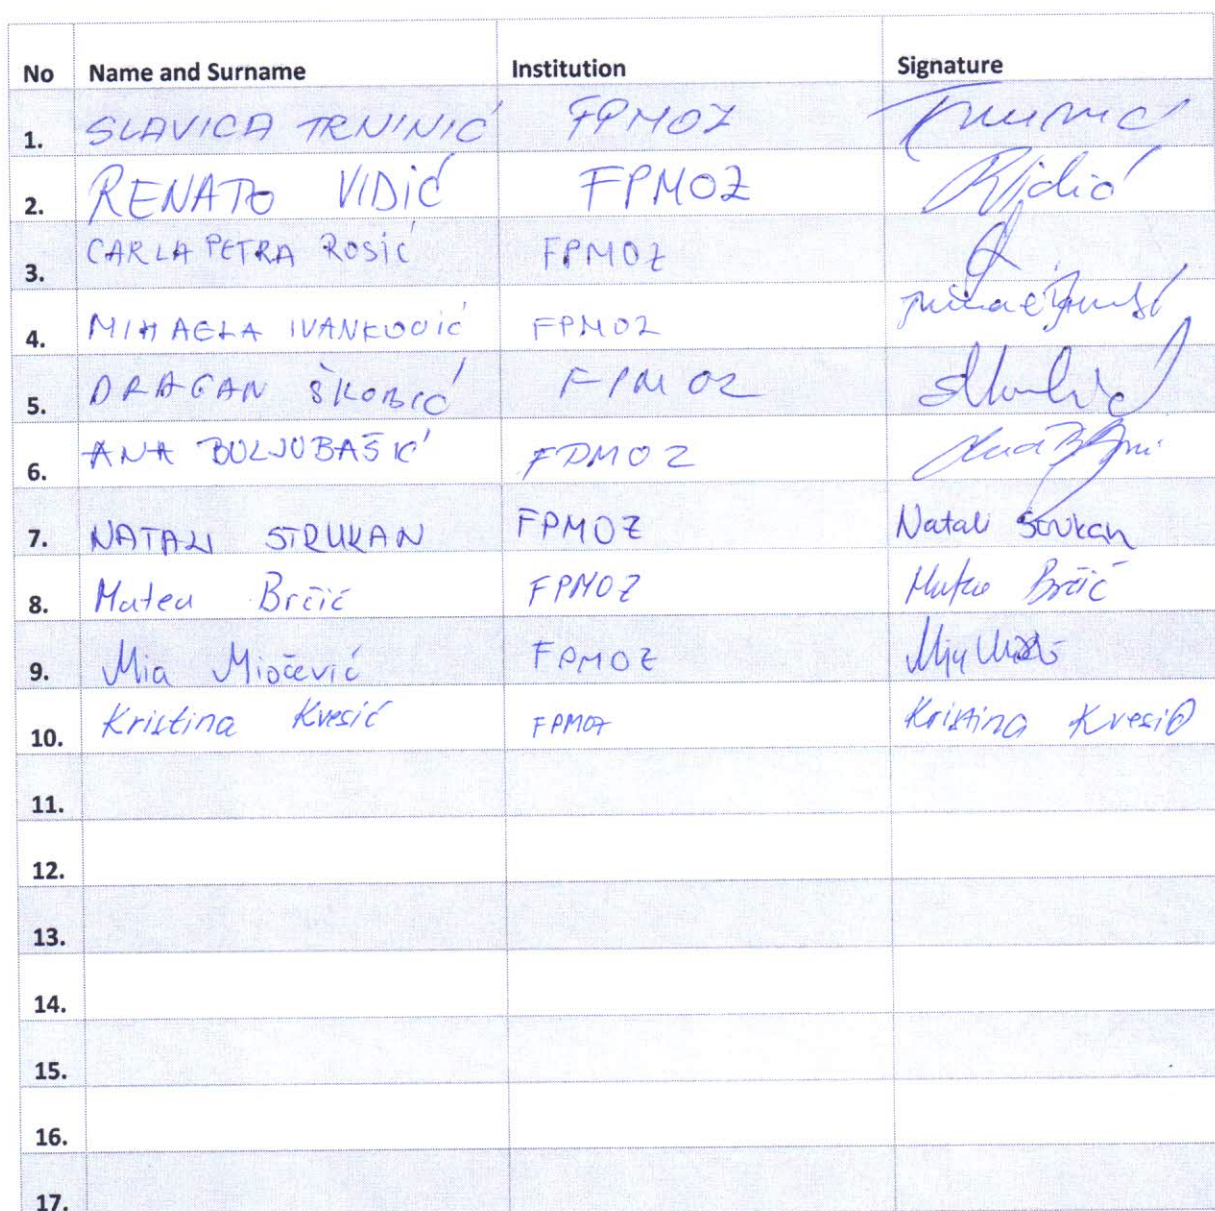 No Name and Surname Institution Signature
1. SLAVICA TRNINIĆ FPMOZ
2. RENATO VIDIĆ FPMOZ RVidić
3. CARLA PETRA ROSIĆ FPMOZ
4. MIHAELA IVANKOVIĆ FPMOZ
5. DRAGAN ŠKOBIĆ FPMOZ
6. ANA BULJUBAŠIĆ FPMOZ
7. NATALI STRUKAN FPMOZ Natali Strukan
8. Matea Brčić FPMOZ Matea Brčić
9. Mia Miočević FPMOZ
10. Kristina Kvesić FPMOZ Kristina Kvesić
11.
12.
13.
14.
15.
16.
17.